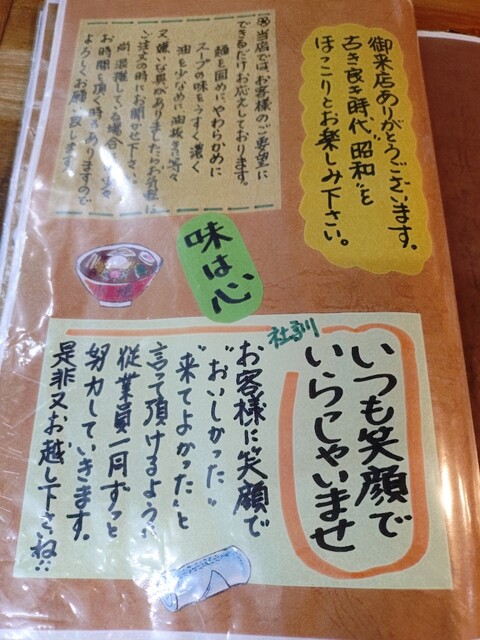 御来店ありがとうございます。
古き良き時代"昭和"を
ほっこりとお楽しみ下さい。
※当店ではお客様のご要望に
できるだけお応えしております。
麺を固めにやわらかめに
スープの味をうすく濃く
油を少なめに油抜き等々
又嫌いな具がありましたらお気軽に
ご注文の時にお聞かせ下さい。
尚混雑している場合は少々
お時間を頂く時もありますので
よろしくお願い致します。
味は心
社訓
いつも笑顔で
いらしゃいませ
お客様に笑顔で
"おいしかった"
"来てよかった"と
言って頂けるよう
従業員一同ずっと
努力していきます。
是非又お越し下さいね!!